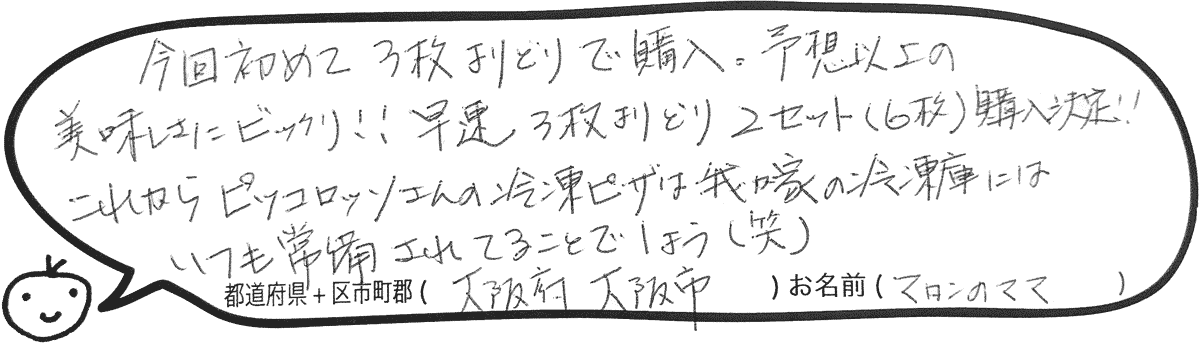 今回初めて3枚よりどりで購入。予想以上の
美味しさにビックリ!!早速3枚よりどり2セット(6枚)購入決定!!
これからピッコロッソさんの冷凍ピザは我が家の冷凍庫には
いつも常備されてることでしょう(笑)
都道府県+区市町郡(大阪府 大阪市)お名前(マロンのママ)